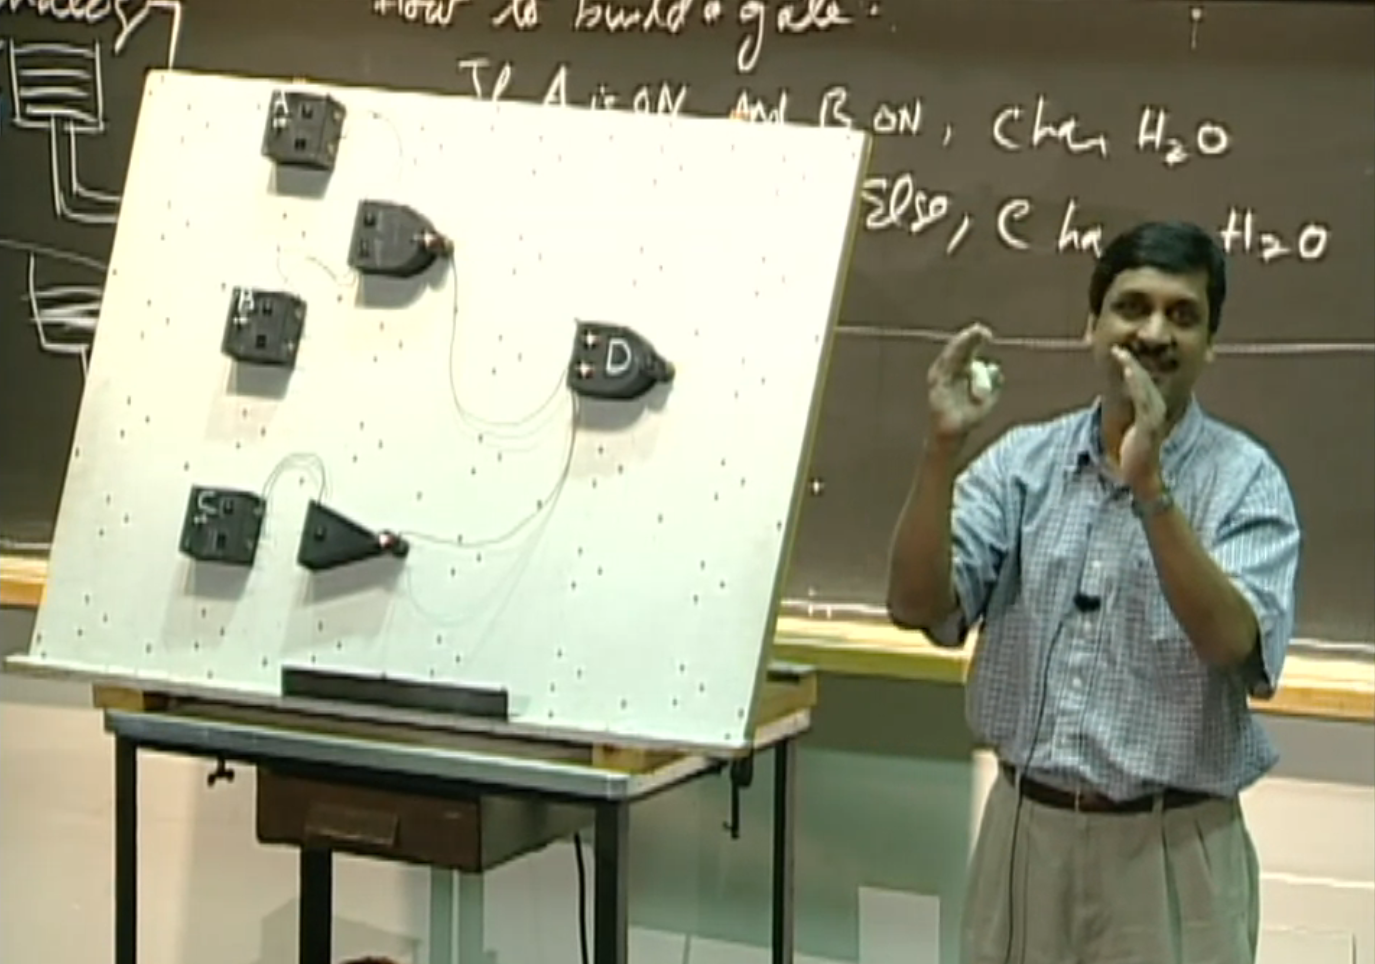 How to build a gate.
If A is ON and B ON, C has H₂O
Else, C has H₂O
A
B
D
C